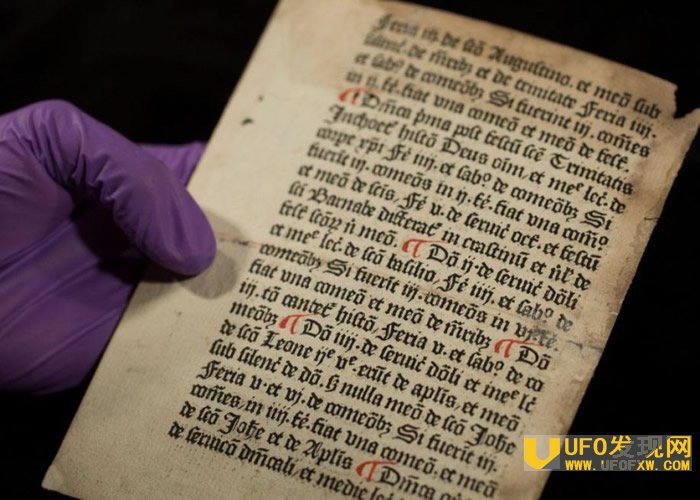 Feria iij. de scō Augustino. et meō sub
silenc̄. de m̄ribꝫ et de trinitate Feria iiij.
et sabō. de comeōbꝫ Si fuerint iij. com̄es
in ij. fē. fiat vna comeō et meō de fest̄.
¶ Dm̄ca p̄ma post festū scē Trinitatis
Inchoet̄ histō Deus oīm, et meꝰ lc̄. de
corpe xp̄i Fē iiij. et sabō. de comeōbꝫ Si
fuerīt iij. comeōs in ij. fē. fiat vna com̄o
et meō de scīs, Fē v. de seruic̄ oct̄. et festū
sci Barnabe differat̄ in crastinū et n̄l̄ de
fest̄ scōꝝ n̄ meō. ¶ Dō ij. de seruic̄ dōli
et meꝰ lc̄. de scō basilio, Fē iiij. et sabō. de
comeōbꝫ Si fuerīt iij. comeōs in fē.
fiat vna comeō et meō de m̄ribꝫ ¶ Dō
iij. tō cantet̄ histō, Feria v. et sabō. de co
meōbꝫ ¶ Dō iiij. de seruic̄ dōli et lc̄
de scō Leone erūt de apl̄is, et meō
sub silenc̄ de dō. nulla meō de scō Joħe
Feria v. et vj. de comeōbꝫ Si fuerīt iij.
com̄es, in iiij. fē. fiat vna comeō, et meō
de scō Joħe et de Apl̄is ¶ Dm̄ca
de seruicō dm̄cali, et medie lec̄
UFO发现网
WWW.UFOFXW.COM